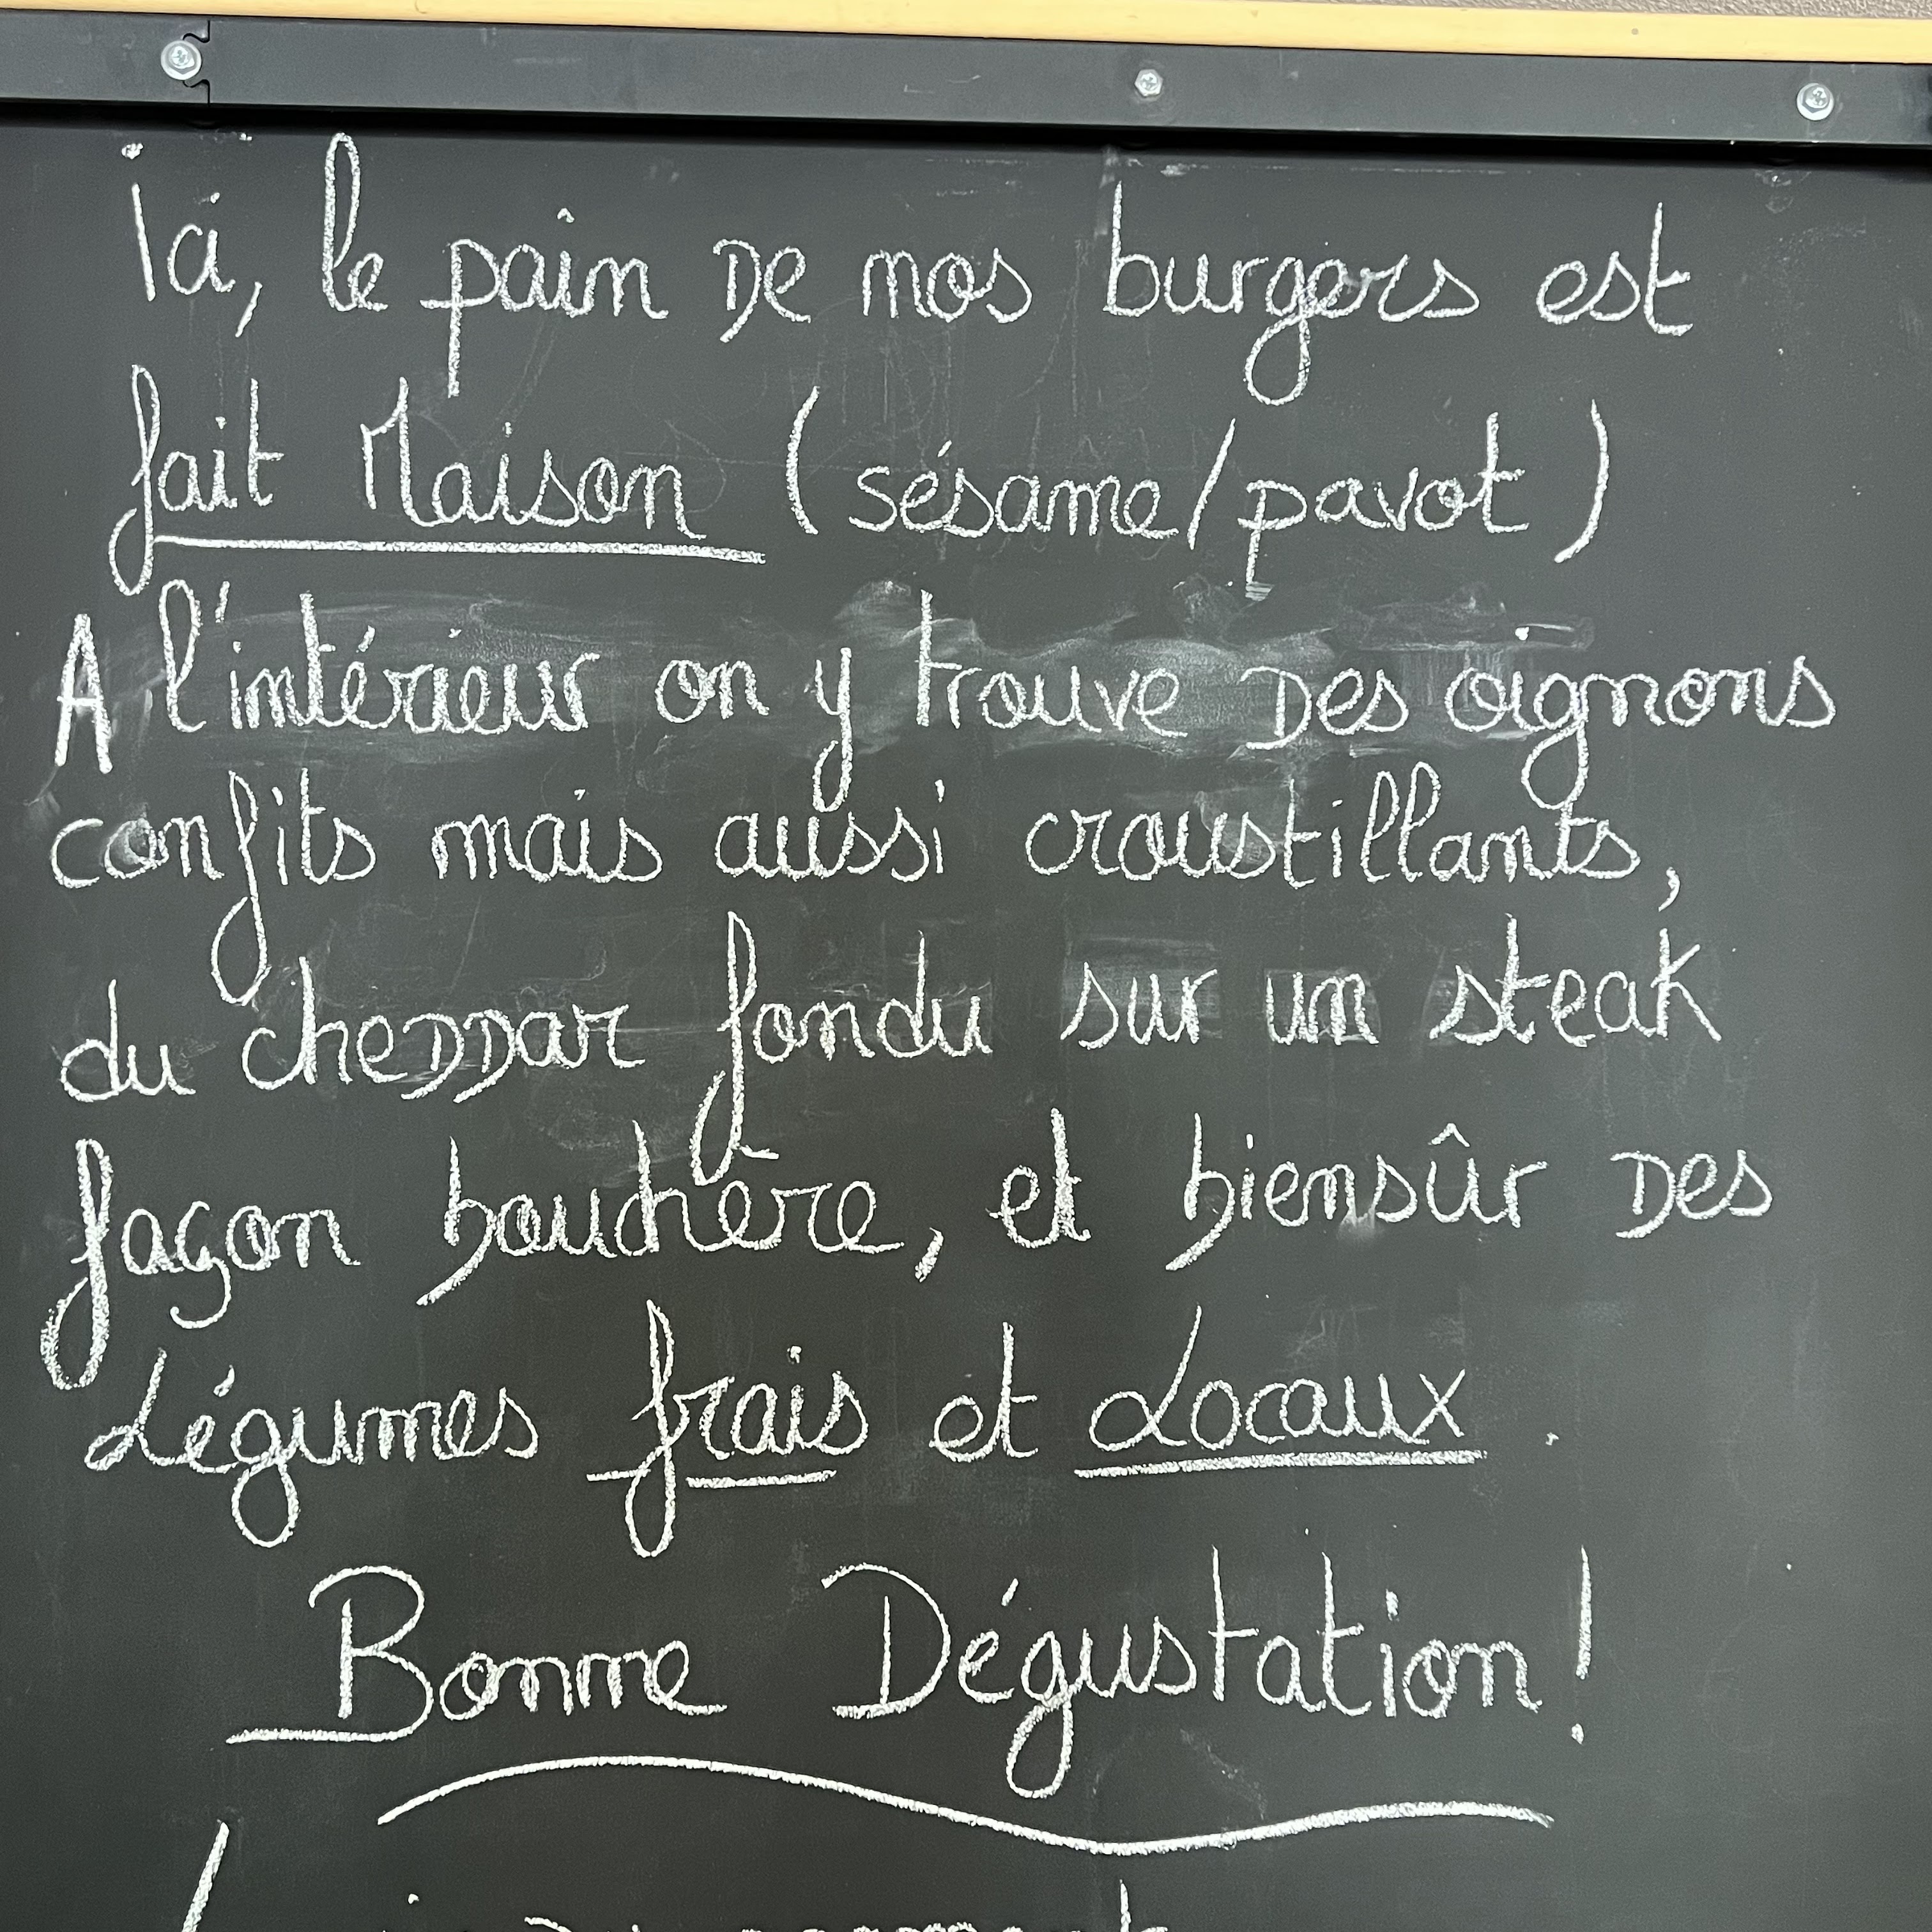 Ici, le pain De nos burgers est
fait Maison (sésame/pavot)
A l'intérieur on y trouve Des oignons
confits mais aussi croustillants,
du cheDDar fondu sur un steak
façon bouchère, et biensûr Des
Légumes frais et Locaux.
Bonne Dégustation!